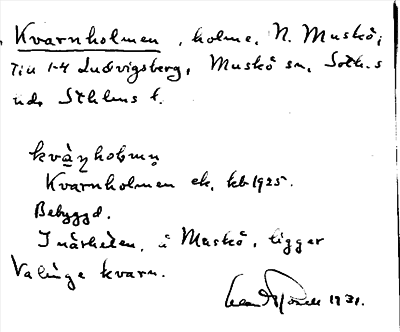 Kvarnholmen, holme, N. Muskö;
Till 1-4 Ludvigsberg, Muskö sn, Soth.s
hd, Sthlms l.
kvà̱ṇhoḷmṇ
Kvarnholmen ek. kb 1925.
Bebyggd.
I närheten, å Muskö, ligger
Valinge kvarn.
1931.